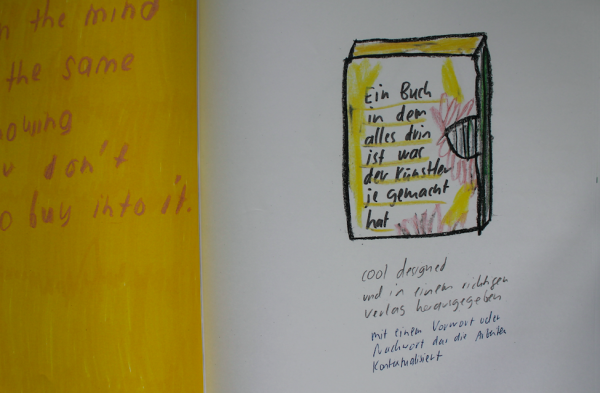 n the mind
the same
nowing
don't
o buy into it.
Ein Buch
in dem
alles drin
ist was
der Künstler
je gemacht
hat
cool designed
und in einem richtigen
verlag herausgegeben
mit einem Vorwort oder
Nachwort das die Arbeiten
Kontextualisiert